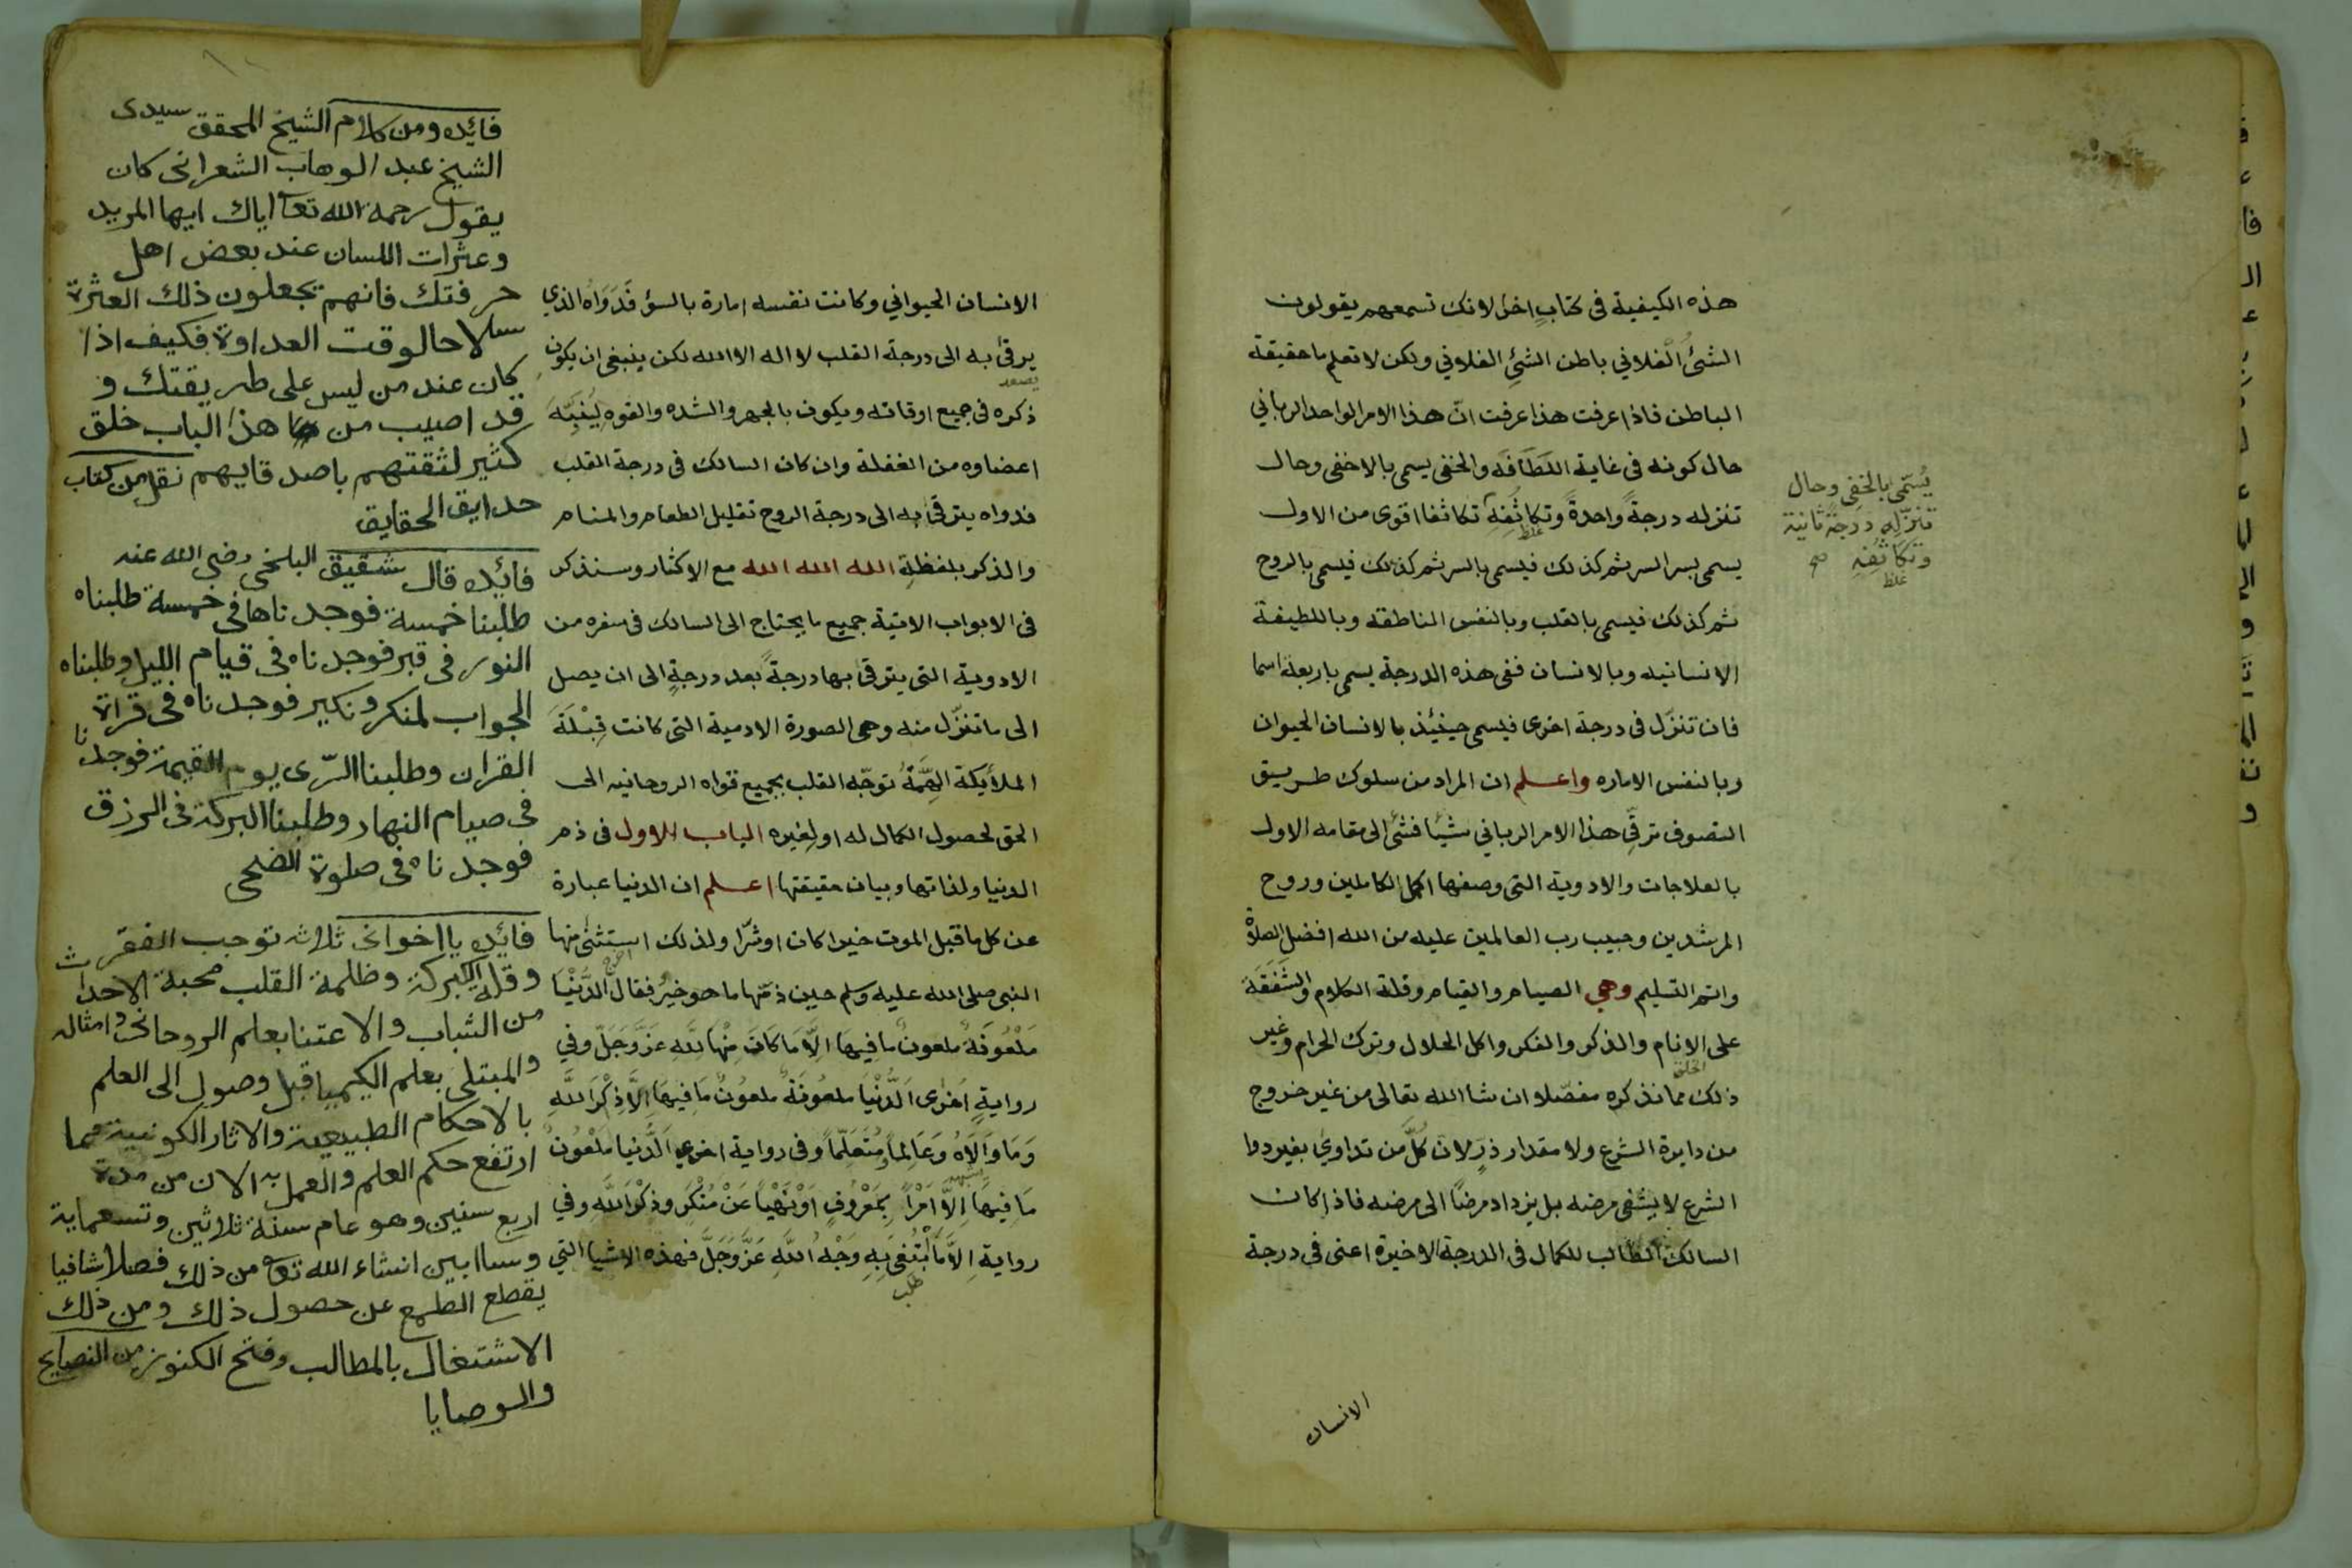 هذه الكيفية فى كتابٍ اخر لانك تسمعهم يقولون
الشئُ الفلاني باطن الشئِ الفلاني ولكن لا تعلم ما حقيقة
الباطن فاذا عرفت هذا عرفت انّ هذا الامر الواحد الرباني
حال كونه فى غاية اللَطَافَه والخفى يسمى بالاخفى وحال
تنزله درجةً واحدةً وتكاثُفَهِ تكاثفا اقوى من الاول
غلظ
يسمى بسر السر ثم كذلك فيسمى بالسر ثم كذلك فيسمى بالروح
ثم كذلك فيسمى بالقلب وبالنفس الناطقه وباللطيفة
الانسانيه وبالانسان ففى هذه الدرجة يسمى باربعة اسما
فان تنزّل فى درجة اخرى فيسمى حينئذ بالانسان الحيوان
وبالنفس الاماره واعلم ان المراد من سلوك طريق
التصوف ترقّى هذا الامر الرباني شيًا فشئ الى مقامه الاول
بالعلاجات والادوية التى وصفها اكمل الكاملين وروح
المرشدين وحبيب رب العالمين عليه من الله افضل الصلوة
واتم التسليم وهي الصيام والقيام وقلة الكلام والشَفَقَة
على الانام والذكر والفكر واكل الحلال وترك الحرام وغير
الخلق
ذلك مما نذكره مفصّلا ان شا الله تعالى من غير خروج
من دايرة الشرع ولا مقدار ذرٍ لان كُلّ من تداوي بغير دوا
الشرع لا يشفى مرضه بل يزداد مرضًا الى مرضه فاذا كان
السالك الطالب للكمال فى الدرجة الاخيرة اعنى فى درجة
الانسان
يُسَمّى بالخَفِى وحال
تنزّلِه درجةً ثانية
وتكَاثُفِهِ صح
غلظ
الانسان الحيواني وكانت نفسه امارة بالسؤ فَدَوَاهُ الذي
يرقىٰ به الى درجة القلب لا اله الا الله لكن ينبغى ان يكون
يصعد
ذكره فى جميع اوقاته ويكون بالجهر والشده والقوه لِيُنَبِّهَ
اعضاوه من الغفلة وان كان السالك فى درجة القلب
فدواه يترقىٰ به الى درجة الروح تقليل الطعام والمنام
والذكر بلفظةِ الله الله الله مع الاكثار وسنذكر
فى الابواب الاتية جميع ما يحتاج الى السالك فى سفره من
الادوية التى يترقى بها درجةً بعد درجةٍ الى ان يصل
الى ما تنزّل منه وهى الصورة الادمية التى كانت قِبْلَةَ
الملأيكة الهِمَّةُ توجّه القلب بجميع قواه الروحانيه الى
الحق لحصول الكمال له او لغيره الباب الاول فى ذم
الدنيا ولذاتها وبيان حقيقتها اعلم ان الدنيا عبارة
عن كل ما قبل الموت خيرا كان او شرّا ولذلك استثنىٰ منها
اخرج
النبى صلى الله عليه وسلم حين ذمّها ما هو خيرٌ فقال الدُّنْيَا
مَلْعُونَةٌ ملعونٌ ما فيها اِلَّا مَا كَانَ مِنْهَا للَّهِ عَزَّ وَجَلَّ وفي
روايةٍ اخرى اَلدُّنْيَا ملعُونَةٌ ملعُونٌ مَا فِيهَا اِلَّا ذِكْرَ اللَّهِ
وَمَا وَالَاهُ وَعَالِماً وَمُتَعَلِّماً وفى رواية اخري الدُّنيا مَلْعُونٌ
مَا فِيهَا اِلَّا اَمْرًا بِمَعْرُوفٍ اَوْ نَهْياً عَنْ مُنْكَرٍ وذِكْرَ اللَّهِ وفي
رواية اِلَّا مَا ابْتُغِىَ بِهِ وَجْهُ اللَّهِ عَزَّ وَجَلَّ فهذه الاشيا التي
طلب
فائده ومن كلام الشيخ المحقق سيدى
الشيخ عبد الوهاب الشعرانى كان
يقول رحمه الله تعا اياك ايها المريد
وعثرات اللسان عند بعض اهل
حرفتك فانهم يجعلون ذلك العثرة
سلاحا لوقت العداوة فكيف اذا
كان عند من ليس على طريقتك و
قد اصيب من هذا الباب خلق
كثير لثقتهم باصدقايهم نقل من كتاب
حدايق الحقايق
فائده قال شقيق البلخى رضى الله عنه
طلبنا خمسة فوجدناها فى خمسة طلبناه
النور فى قبر فوجدناه فى قيام الليل وطلبناه
الجواب لمنكر ونكير فوجدناه فى قراة
القران وطلبنا الرّى يوم القيمة فوجدنا
فى صيام النهار وطلبنا البركة فى الرزق
فوجدناه فى صلوة الضحى
فائده يا اخوانى ثلاث توجب الفقر
وقلة البركة وظلمة القلب محبة الاحداث
من الشباب والاعتنا بعلم الروحانى وامثاله
والمبتلى بعلم الكيميا قبل وصول الى العلم
بالاحكام الطبيعية والاثار الكونية مما
ارتفع حكم العلم والعمل به الان من مدة
اربع سنين وهو عام سنة ثلاثين وتسعماية
وسا ابين انشاء الله تعا من ذلك فصلا شافيا
يقطع الطمع عن حصول ذلك ومن ذلك
الاشتغال بالمطالب وفتح الكنوز من النصايح
والوصايا